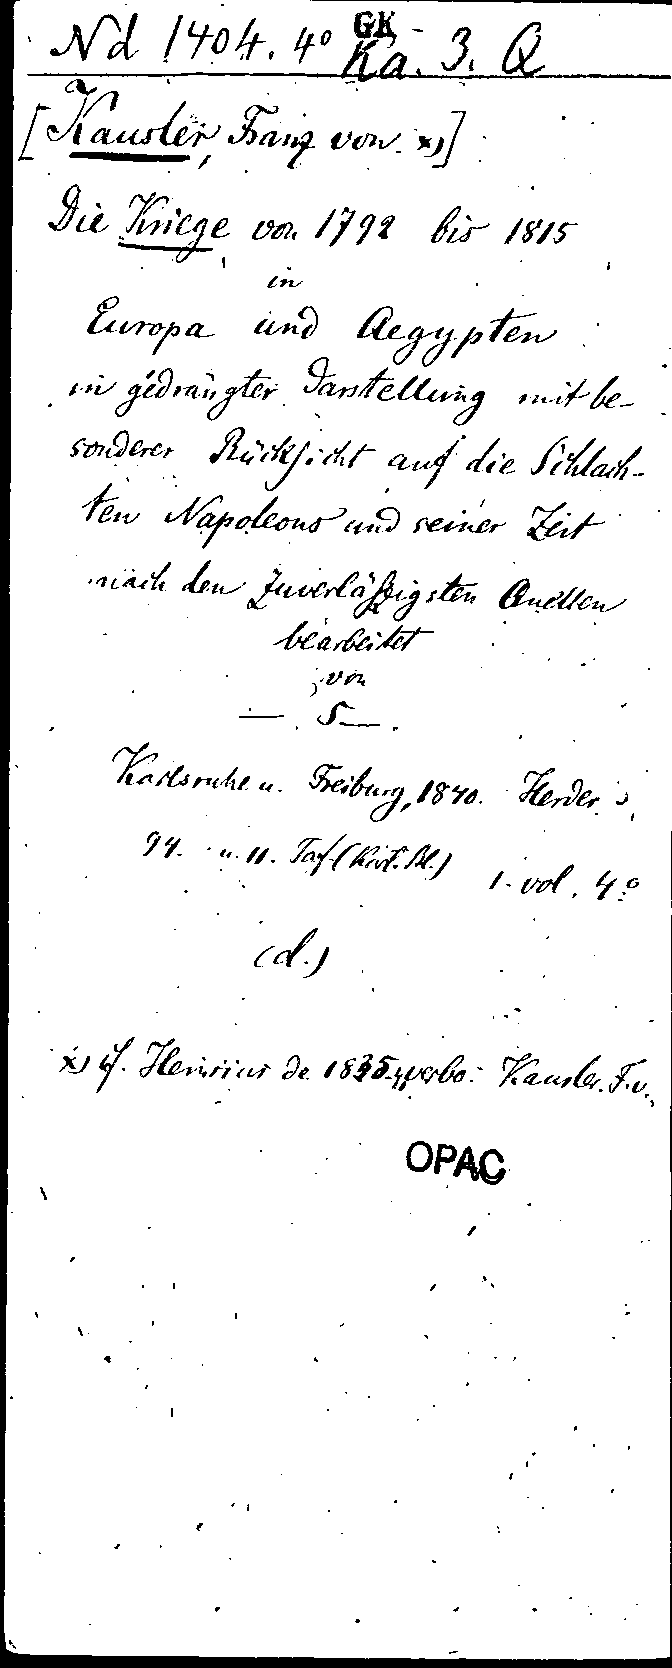 Nd 1404. 4° GK Ka. 3. Q
[Kausler, Franz von x)]
Die Kriege von 1792 bis 1815
in
Europa und Aegypten
in gedrängter Darstellung mit be-
sonderer Rücksicht auf die Schlach-
ten Napoleons und seiner Zeit
nach den zuverläßigsten Quellen
bearbeitet
von
— S—.
Karlsruhe u. Freiburg, 1840. Herder
94. u. 11. Taf. (Kart. Bl.)
1. vol. 4°
(d.)
x) cf. Heinsius de 1835 verbo: Kausler. F. v.
OPAC